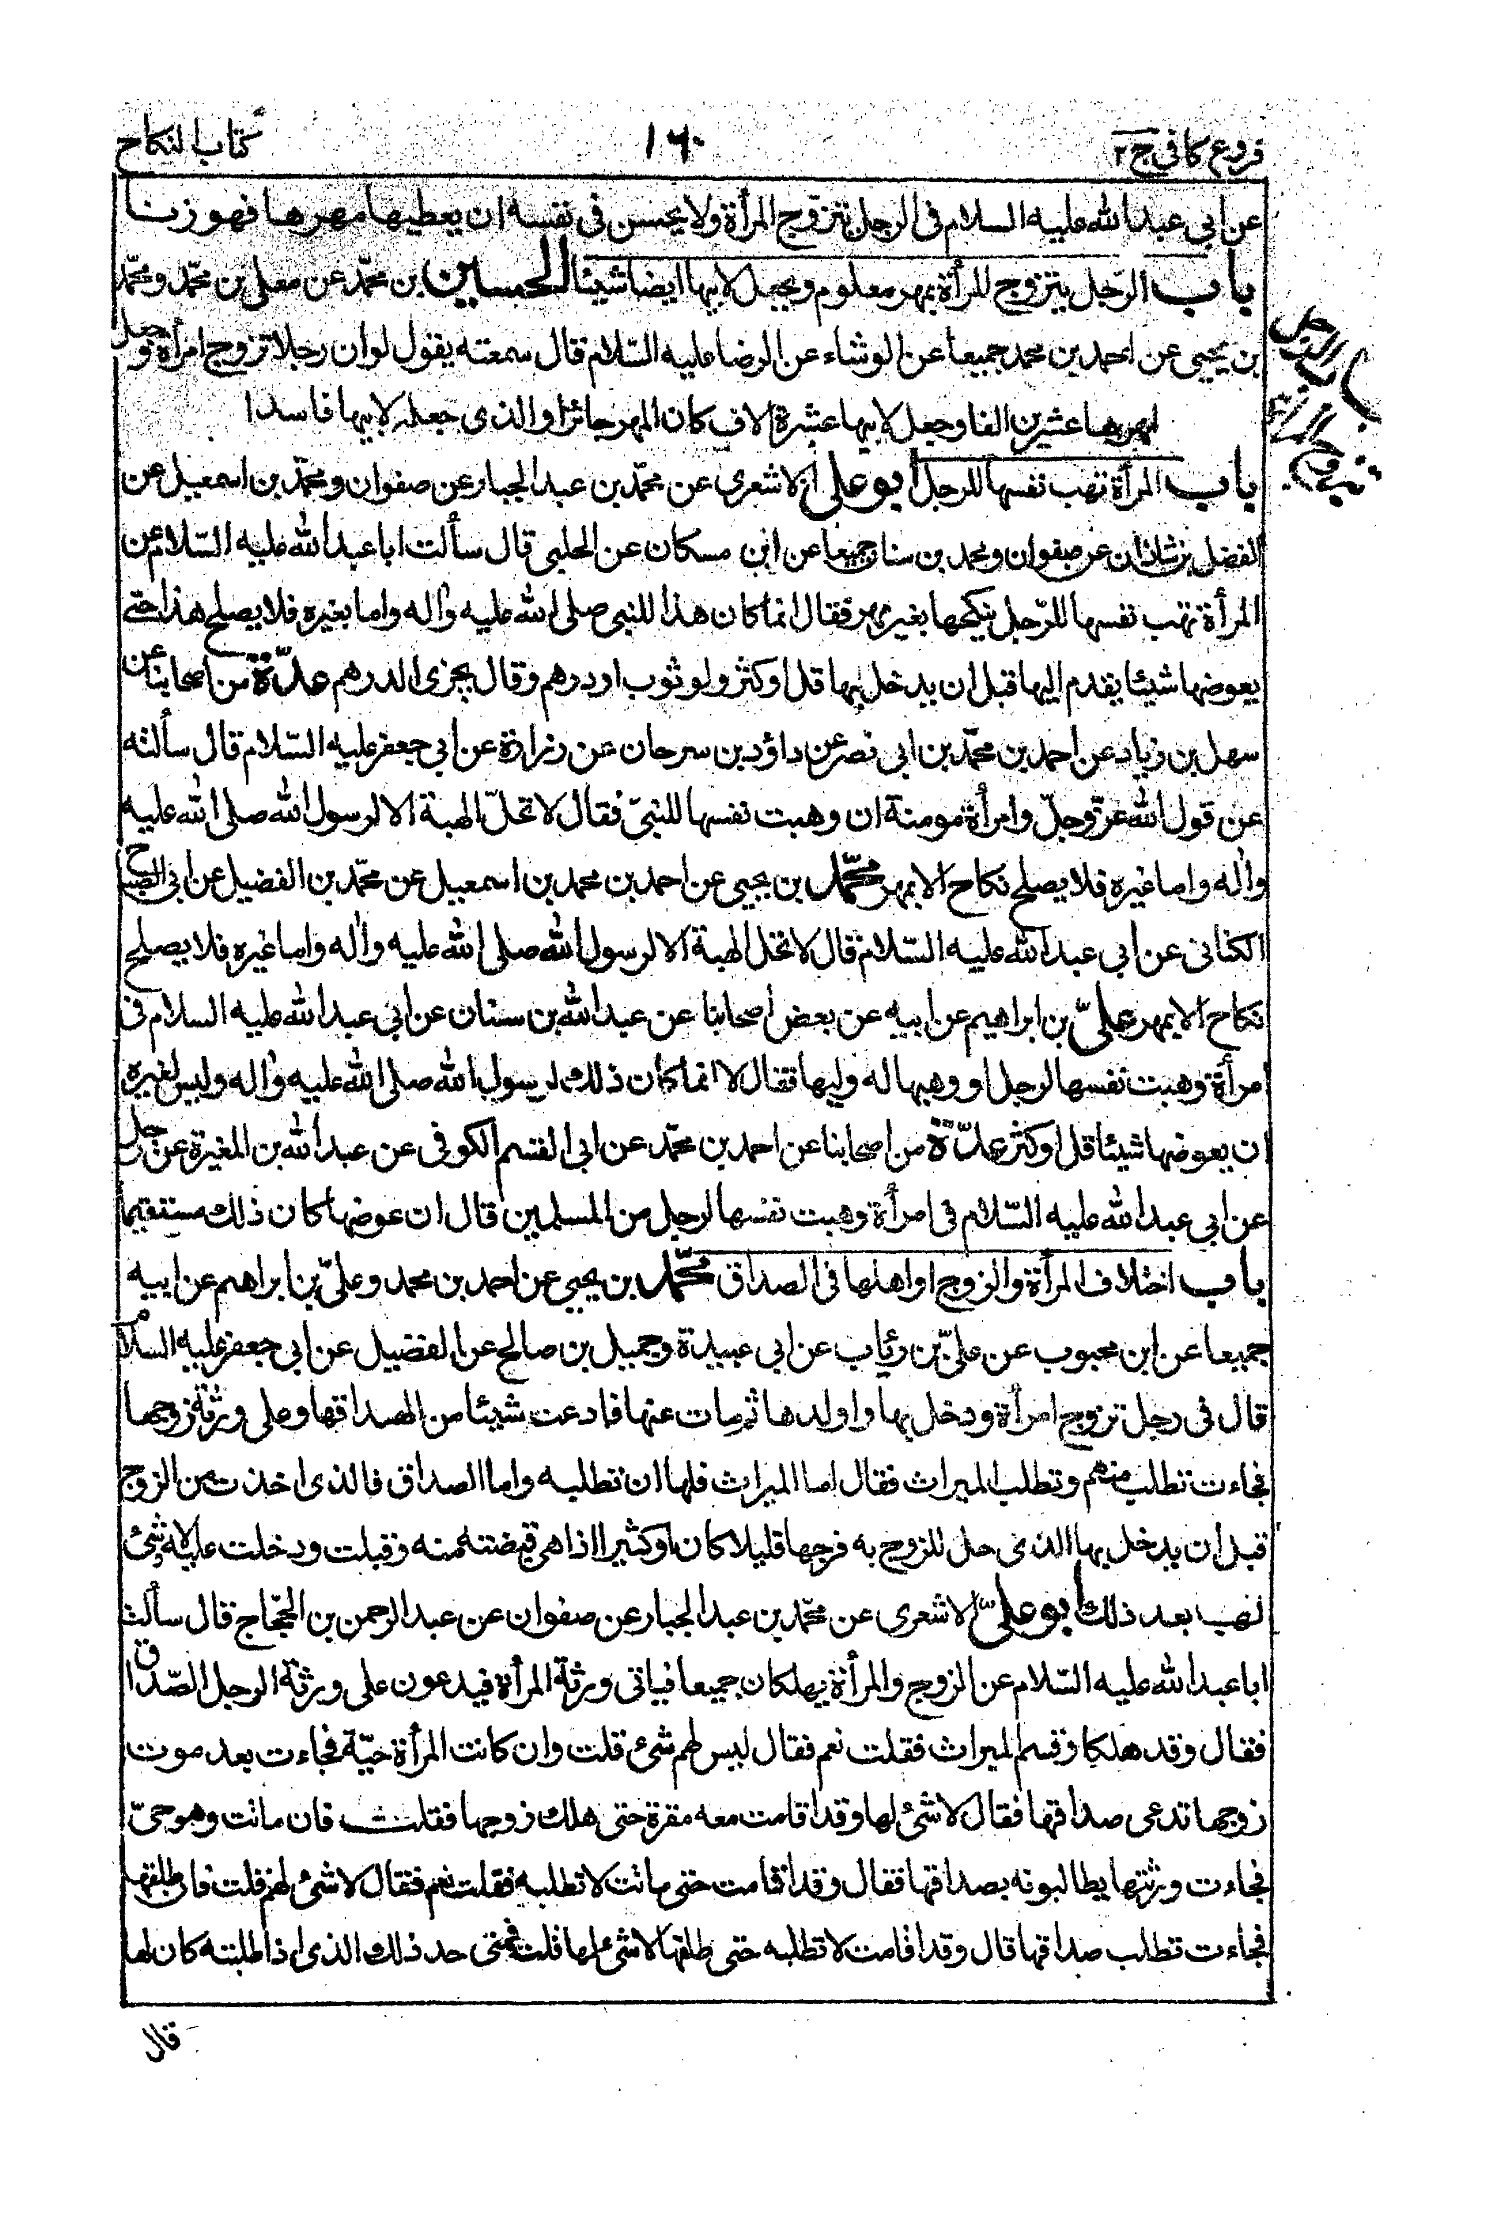 فروع كافي ج ٢
١٦٠
كتاب النكاح
عن ابي عبد الله عليه السلام في الرجل يتزوج المرأة ولا يحسن في نفسه ان يعطيها مهرها فهو زنا
باب الرّجل يتزوج المرأة بمهر معلوم ويجعل لابيها ايضا شيئا الحسين بن محمّد عن معلى بن محمّد ومحمّد
بن يحيى عن احمد بن محمد جميعا عن الوشاء عن الرضا عليه السّلام قال سمعته يقول لو ان رجلا تزوج امرأة وجعل
مهرها عشرين الفا وجعل لابيها عشرة الاف كان المهر جائزا والذي جعله لابيها فاسدا
باب المرأة تهب نفسها للرجل ابو علي الاشعري عن محمّد بن عبد الجبار عن صفوان ومحمّد بن اسمعيل عن
الفضل بن شاذان عن صفوان ومحمد بن سنان جميعا عن ابن مسكان عن الحلبي قال سألت ابا عبد الله عليه السّلام عن
المرأة تهب نفسها للرّجل ينكحها بغير مهر فقال انما كان هذا للنبي صلى الله عليه واله واما بغيره فلا يصلح هذا حتى
يعوضها شيئا يقدم اليها قبل ان يدخل بها قل او كثر ولو ثوب او درهم وقال يجزي الدرهم عدّة من اصحابنا عن
سهل بن زياد عن احمد بن محمّد بن ابي نصر عن داؤد بن سرحان عن زرارة عن ابي جعفر عليه السّلام قال سألته
عن قول الله عزّ وجلّ وامرأة مومنة ان وهبت نفسها للنبيّ فقال لا تحلّ الهبة الا لرسول الله صلى الله عليه
واله واما غيره فلا يصلح نكاح الا بمهر محمّد بن يحيى عن احمد بن محمد بن اسمعيل عن محمّد بن الفضيل عن ابي الصباح
الكناني عن ابي عبد الله عليه السّلام قال لا تحل الهبة الا لرسول الله صلى الله عليه واله واما غيره فلا يصلح
نكاح الا بمهر عليّ بن ابراهيم عن ابيه عن بعض اصحابنا عن عبد الله بن سنان عن ابي عبد الله عليه السلام في
امرأة وهبت نفسها لرجل او وهبها له وليها فقال لا انما كان ذلك لرسول الله صلى الله عليه واله وليس لغيره
ان يعوضها شيئا قل او كثر عدّة من اصحابنا عن احمد بن محمّد عن ابي القسم الكوفي عن عبد الله بن المغيرة عن رجل
عن ابي عبد الله عليه السّلام في امرأة وهبت نفسها لرجل من المسلمين قال ان عوضها كان ذلك مستقيما
باب اختلاف المرأة والزوج او اهلها في الصداق محمّد بن يحيى عن احمد بن محمد وعليّ بن ابراهيم عن ابيه
جميعا عن ابن محبوب عن عليّ بن رئاب عن ابي عبيدة وجميل بن صالح عن الفضيل عن ابي جعفر عليه السلام
قال في رجل تزوج امرأة ودخل بها واولدها ثم مات عنها فادعت شيئا من الصداقها وعلى ورثة زوجها
فجاءت تطلب منهم وتطلب الميراث فقال اما الميراث فلها ان تطلبه واما الصداق فالذي اخذت من الزوج
قبل ان يدخل بها الذي حل للزوج به فرجها قليلا كان او كثيرا اذا هي قبضته منه وقبلت ودخلت عليه لا شئ
لها بعد ذلك ابو عليّ الاشعري عن محمّد بن عبد الجبار عن صفوان عن عبد الرحمن بن الحجّاج قال سألت
ابا عبد الله عليه السّلام عن الزوج والمرأة يهلكان جميعا فياتي ورثة المرأة فيدعون على ورثة الرجل الصّداق
فقال وقد هلكا وقسم الميراث فقلت نعم فقال ليس لهم شئ قلت وان كانت المرأة حيّة فجاءت بعد موت
زوجها تدعي صداقها فقال لا شئ لها وقد اقامت معه مقرة حتى هلك زوجها فقلت فان ماتت وهو حيّ
فجاءت ورثتها يطالبونه بصداقها فقال وقد اقامت حتى ماتت لا تطلبه فقلت نعم فقال لا شئ لهم قلت فان طلقها
فجاءت تطلب صداقها قال وقد اقامت لا تطلبه حتى طلقها لا شئ لها قلت فمتى حد ذلك الذي اذا طلبته كان لها
قال